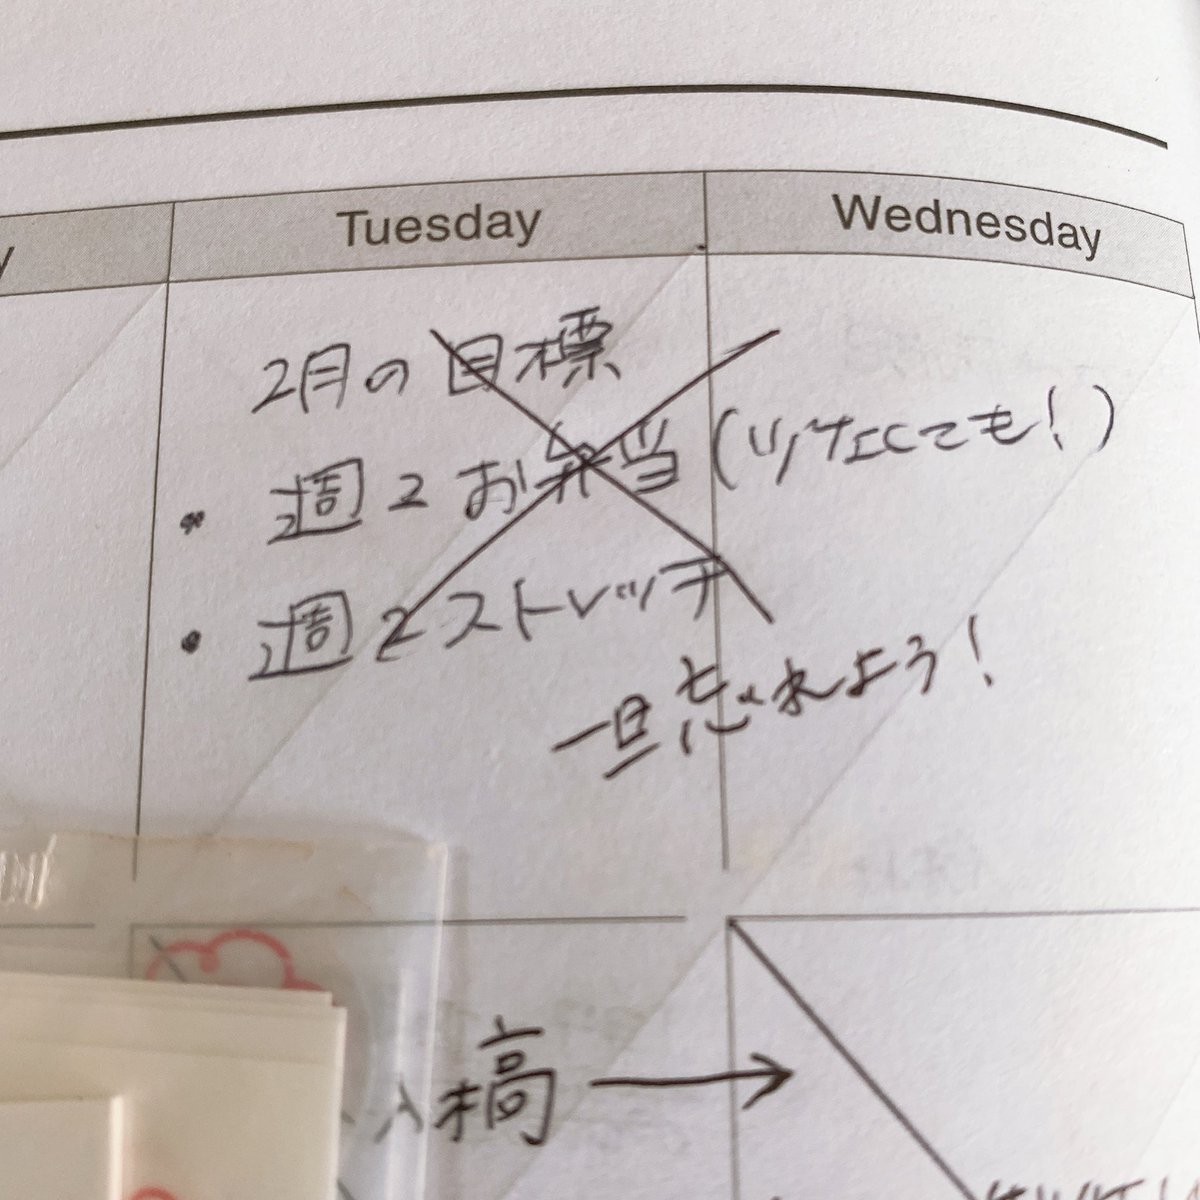 Tuesday
Wednesday
2月の目標
・週2お弁当(
も!)
・週2ストレッチ
一旦忘れよう!
入稿→